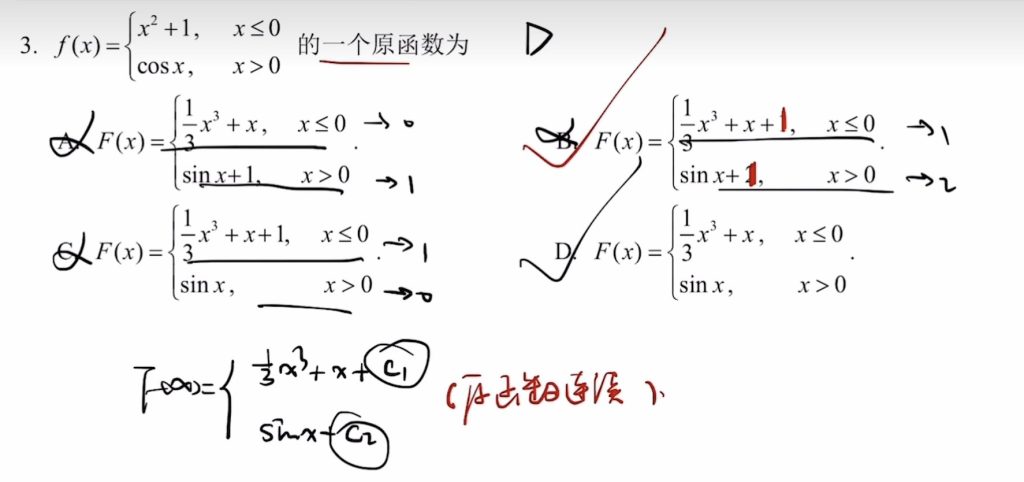 3. f(x)={x²+1, x≤0 的一个原函数为 D
cosx, x>0
A. F(x)={1/3x³+x, x≤0 →0
sin x+1, x>0 →1
B. F(x)={1/3x³+x+1, x≤0 →1
sin x+1, x>0 →2
C. F(x)={1/3x³+x+1, x≤0 →1
sin x, x>0 →0
D. F(x)={1/3x³+x, x≤0
sin x, x>0
F(x)={1/3x³+x+C₁
sinx+C₂
(原函数连续).